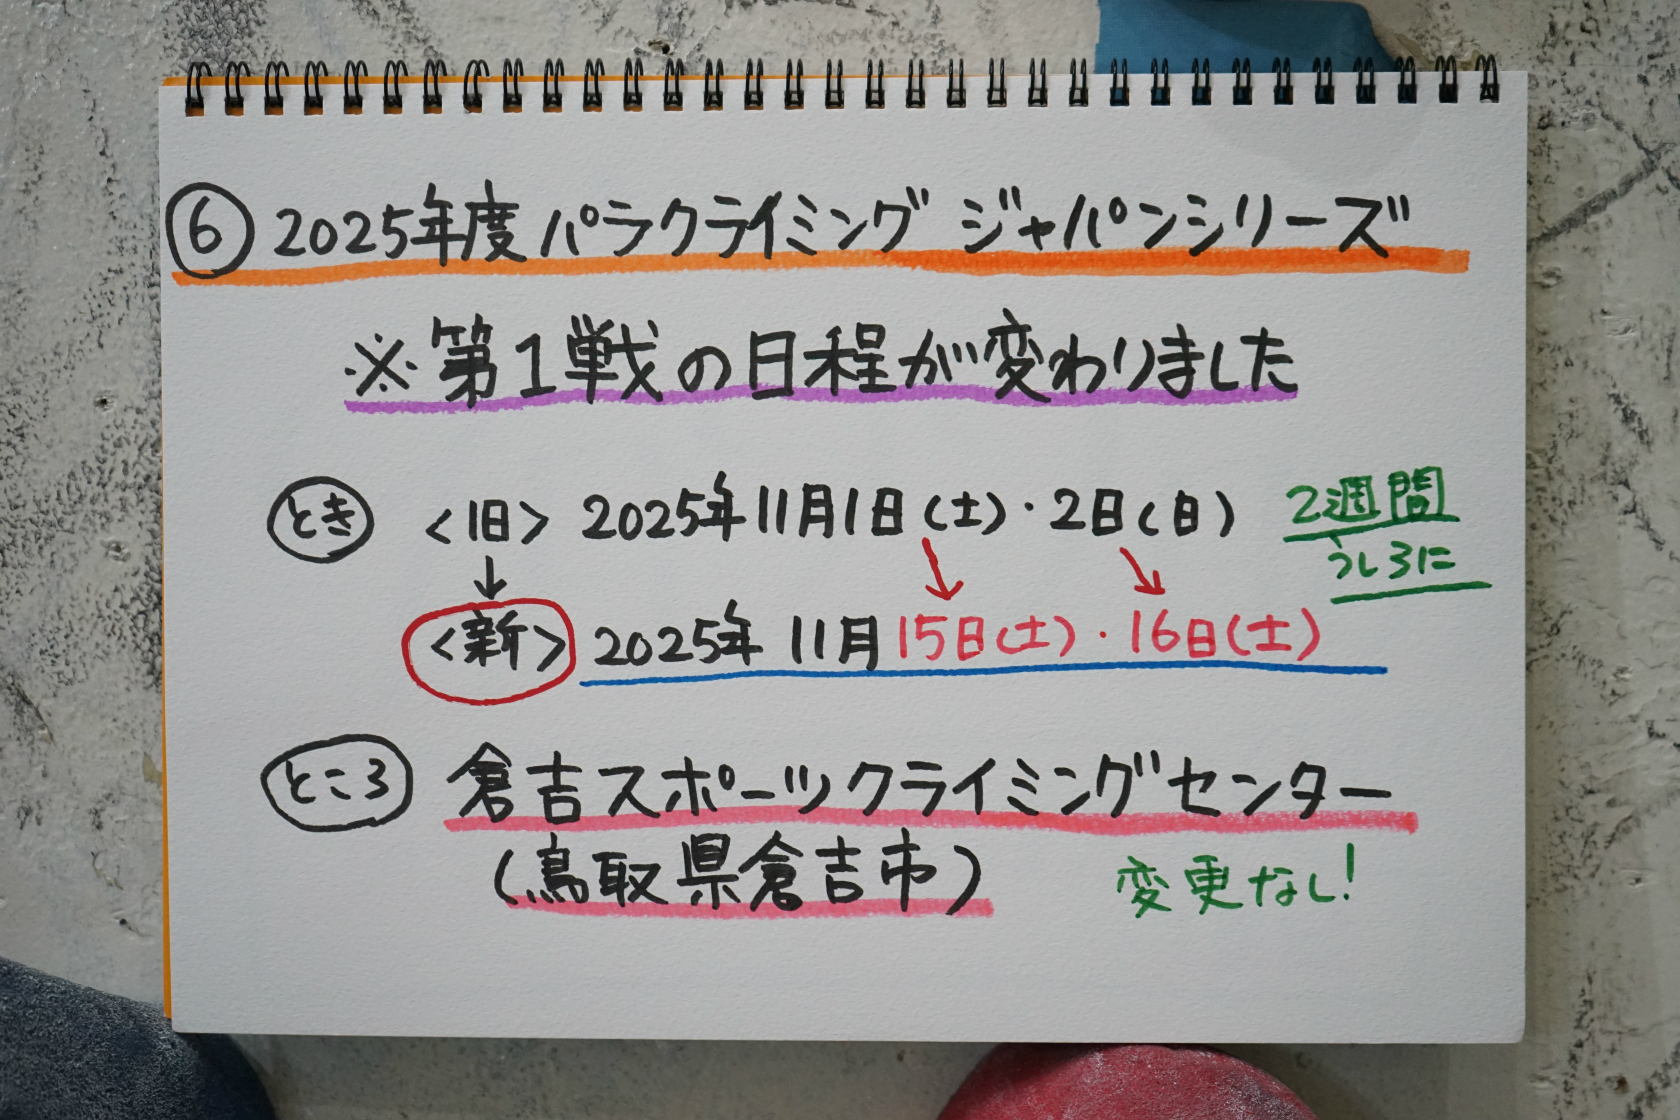 ⑥ 2025年度 パラクライミング ジャパンシリーズ
※第1戦の日程が変わりました
とき <旧> 2025年11月1日(土)・2日(日)
2週間
うしろに
↓
<新> 2025年 11月15日(土)・16日(土)
ところ 倉吉スポーツクライミングセンター
(鳥取県倉吉市)
変更なし!